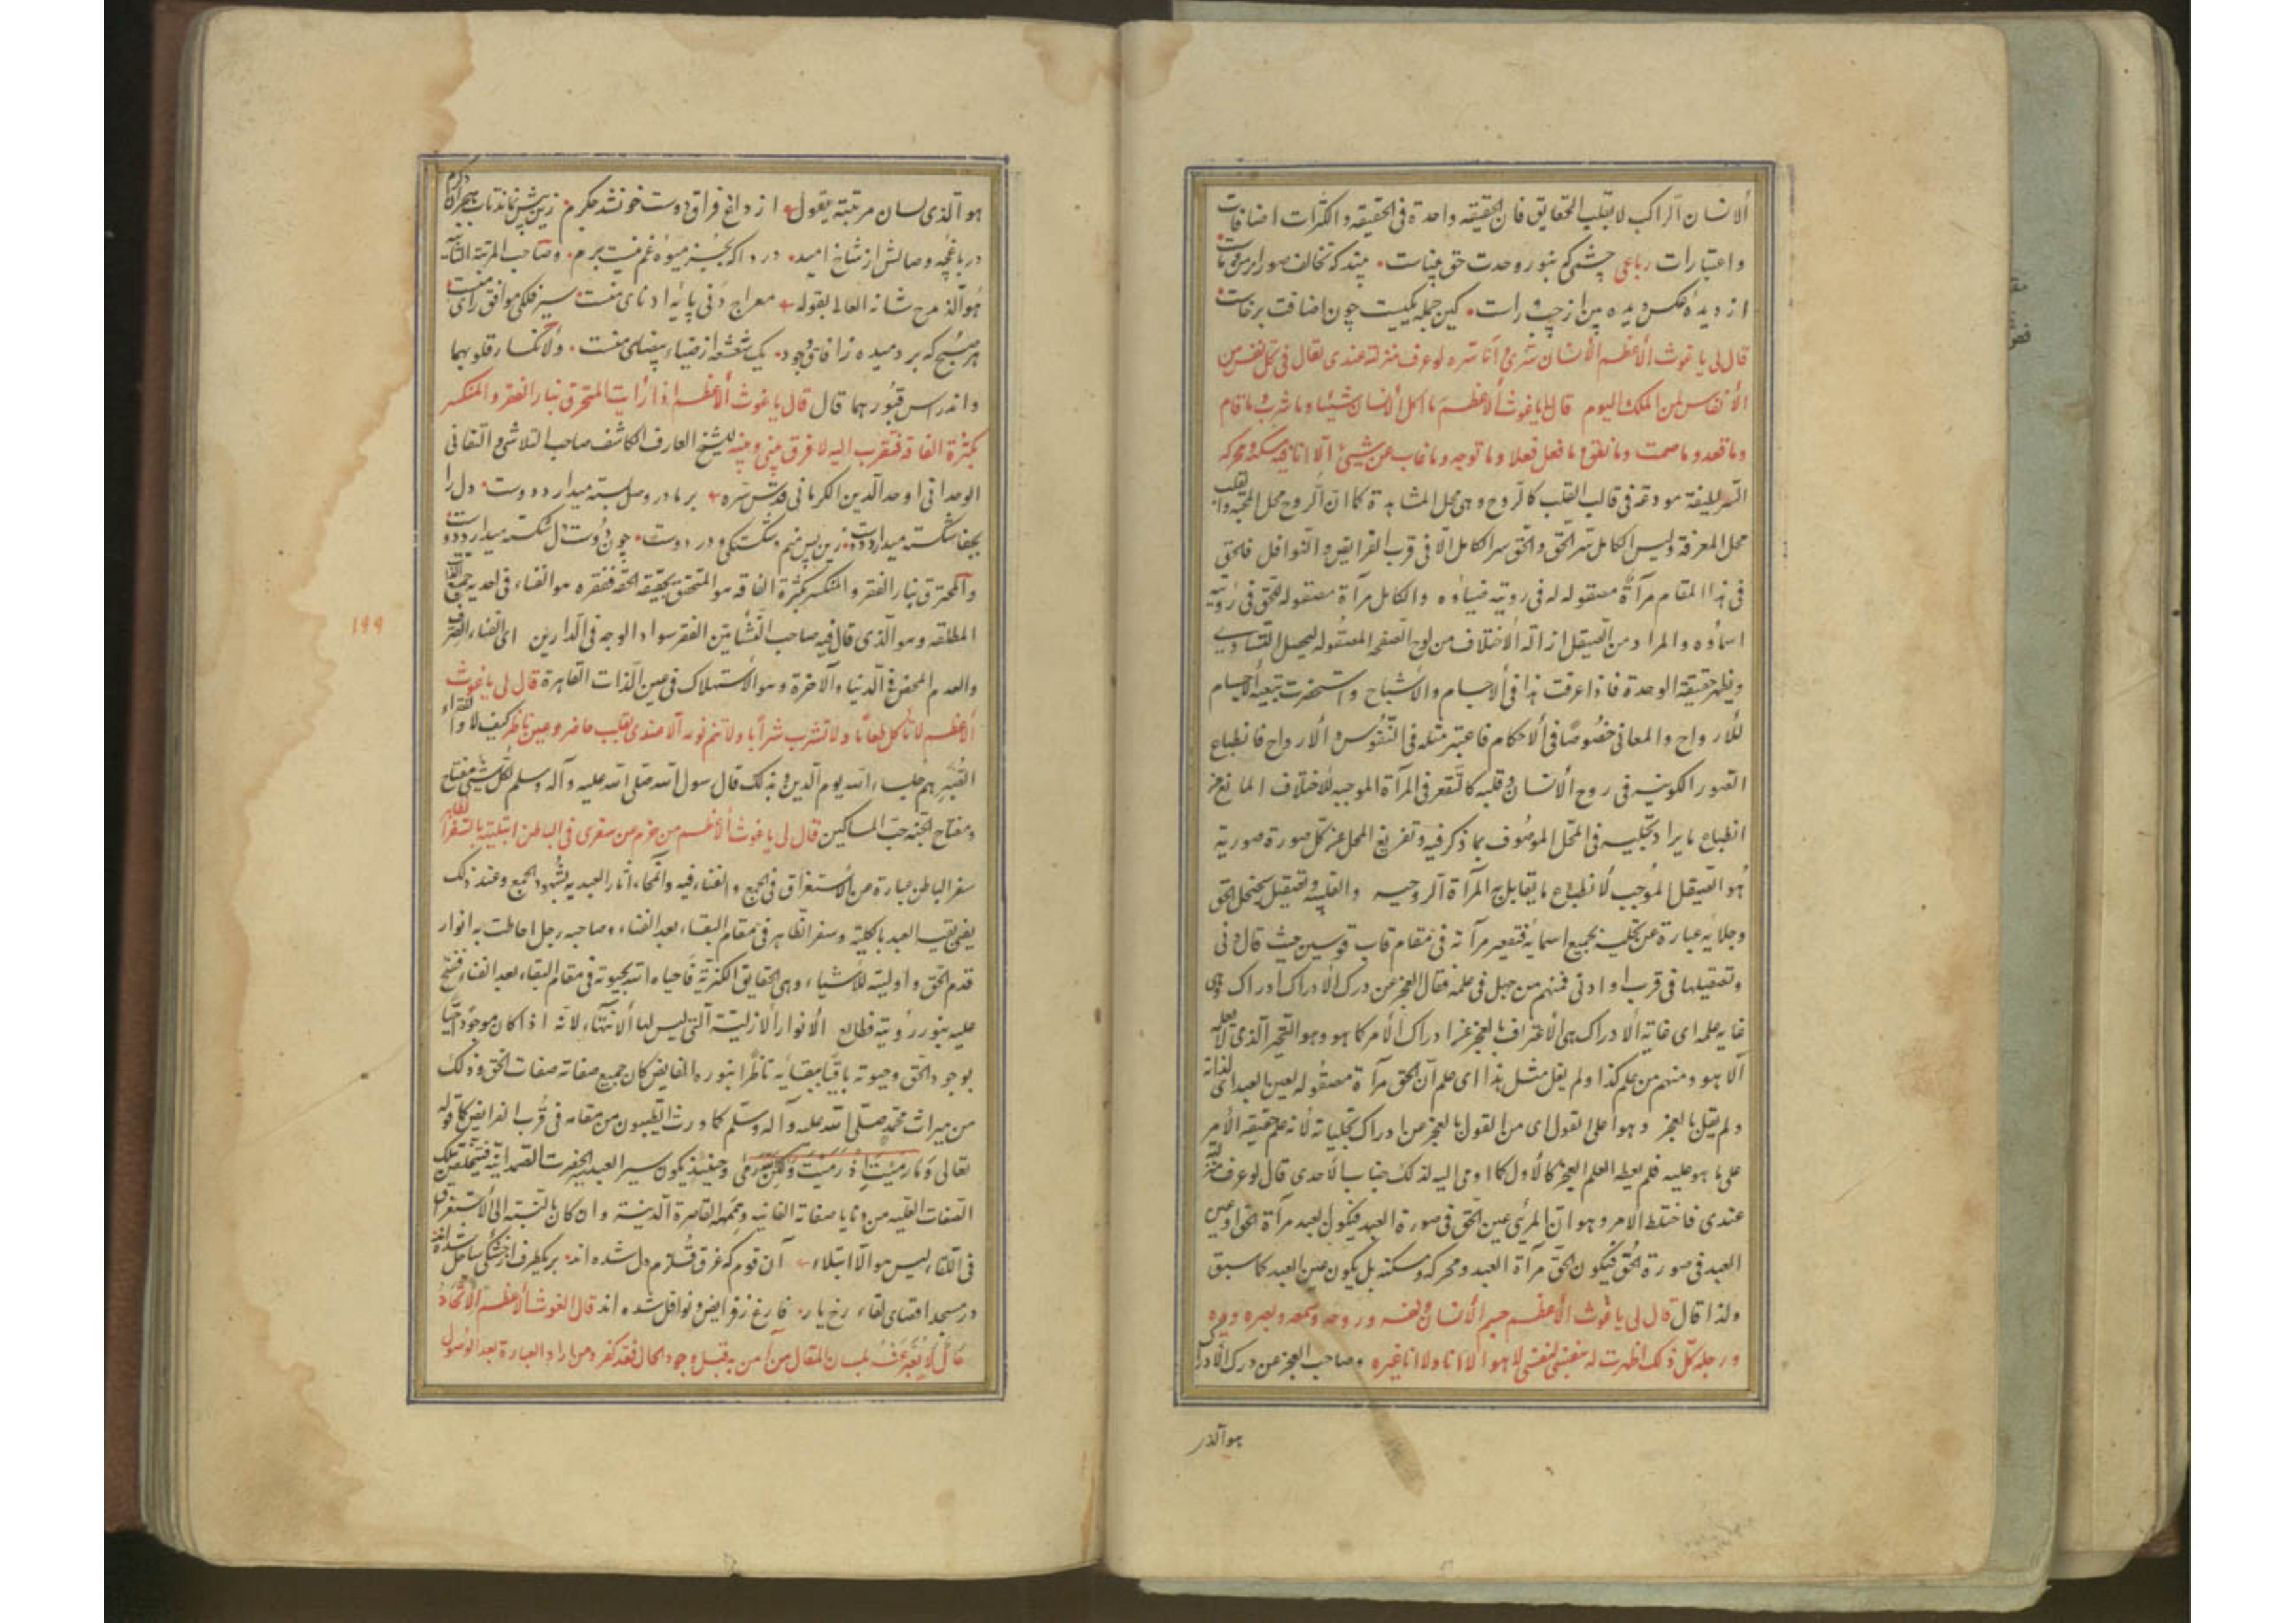 الانسان الراكب لا بقلب الحقایق فان الحقیقه واحدة فی الحقیقه و الکثرات اضافات
و اعتبارات رباعی چشمی که بنور وحدت حق بیناست بیند که تخالف صور از
از دیدهٔ عکس دیده بین از چپ و راست کین جمله یکیست چون اضافت برخاست
قال لی یا غوث الأعظم الأنسان سری و أنا سره لو عرف منزلته عندی لقال فی کل نفس من
الأنفاس لمن الملک الیوم قال لی یا غوث الأعظم ما اکل الأنسان شیئا و ما شرب و ما قام
و ما قعد و ما صمت و ما نطق و ما فعل فعلا و ما توجه و ما غاب عن شیئ الا انا فیه مسکنه و محرکه
السر لطیفة مودعة فی قالب القلب کالروح و هی محل المشاهدة کما ان الروح محل المحبة و القلب
محل المعرفة و لیس الکامل سر الحق و الحق سر الکامل الا فی قرب الفرایض و النوافل فالحق
فی هذا المقام مرآة مصقوله له فی رویة ضیاؤه و الکامل مرآة مصقوله للحق فی رؤیة
اسماؤه و المراد من الصیقل ازالة الأختلاف من لوح الصفحه المصقوله لیحصل التساوی
و یظهر حقیقة الوحدة فاذا عرفت هذا فی الأجسام و الأشباح و استحضرت تبعیة الأجسام
للأرواح و المعانی خصوصًا فی الأحکام فاعتبر مثله فی النفوس و الأرواح فانطباع
الصور الکونیه فی روح الأنسان و قلبه کالتقعر فی المرآة الموجبه للاختلاف المانع من
انطباع ما یراد تجلیه فی المحل الموصوف بما ذکر فیه و تفریغ المحل عن کل صورة صوریة
هو الصیقل الموجب لانطباع ما یقابل به المرآة الروحیه و القلبیه و تصقیل سجنجل الحق
و جلایه عبارة عن تجلیه بجمیع اسمائه فتقعیر مرآته فی مقام قاب قوسین حیث قال فی
و تصقیلها فی قرب او ادنی فمنهم من جهل فی علمه فقال العجز عن درک الأدراک ادراک و هی
غایة علمه ای غایة الأدراک هی الأعتراف بالعجز عن ادراک الأمر کما هو و هو التحیر الذی لا یعلمه
الا هو و منهم من علم کذا و لم یقل مثل هذا ای علم ان الحق مرآة مصقوله لعین العبد ای لذاته
و لم یقل بالعجز و هو اعلی القول ای من القول بالعجز عن ادراک تجلیاته لأنه علم حقیقة الأمر
علی ما هو علیه فلم یعطه العلم العجز کالأول کما اومی الیه لذلک جناب الأحدی قال لو عرف منزلته
عندی فاختلط الأمر و هو ان المرئی عین الحق فی صورة العبد فیکون العبد مرآة الحق او عین
العبد فی صورة الحق فیکون الحق مرآة العبد و محرکه و مسکنه بل یکون عین العبد کما سبق
و لذا قال قال لی یا غوث الأعظم جسم الأنسان و نفسه و روحه و سمعه و بصره و یده
و رجله کل ذلک اظهرت له بنفسی لنفسی لا هو الا انا و لا انا غیره و صاحب العجز عن درک الأدراک
هو الذی
هو الذی لسان مرتبته یقول از داغ فراق دوست خون شد جگرم زین بیش نماند تاب هجران دگرم
در باغچه وصالش از شاخ امید دردا که بجز میوهٔ غم نیست برم و صاحب المرتبة الثانیة
هو الذی مدح شانه العالی بقوله معراج دنی پایهٔ ادنای منست سیر فلکی موافق رای منست
هر صبح که بر دمیده ز آفاق وجود یک شعشعه از ضیاء بیضای منست و لانکسار قلوبهما
و اندراس قبورهما قال قال یا غوث الأعظم اذا رأیت المحترق بنار الفقر و المنکسر
بکثرة الفاقة فتقرب الیه لا فرق بینی و بینه للشیخ العارف الکاشف صاحب التلاشی و التفانی
الوحدانی اوحد الدین الکرمانی قدس سره بر ما در وصل بسته میدارد دوست دل را
بجفا شکسته میدارد دوست زین پس من و شکستگی و در دوست چون دوست دل شکسته میدارد دوست
و المحترق بنار الفقر و المنکسر بکثرة الفاقه هو المتحقق بحقیقة الحقه ففقره هو الفناء فی احدیة جمیع الذات
المطلقه و هو الذی قال فیه صاحب النشأتین الفقر سواد الوجه فی الدارین ای الفناء الصرف
و العدم المحض فی الدنیا و الآخرة و هو الأستهلاک فی عین الذات القاهرة قال لی یا غوث
الأعظم لا تأکل طعامًا و لا تشرب شرابًا و لا تنم نومة الا عندی بقلب حاضر و عین ناظر کیف لا و الفقراء
الصبر هم جلساء الله یوم الدین و بذلک قال رسول الله صلی الله علیه و آله و سلم لکل شیئ مفتاح
و مفتاح الجنه حب المساکین قال لی یا غوث الأعظم من حرم من سفری فی الباطن ابتلیته بالسفر الظاهر
سفر الباطن عبارة عن الأستغراق فی الجمع و الفناء فیه و انمحاء آثار العبدیه بشهود الجمع و عند ذلک
یفنی العبد بالکلیة و سفر الظاهر فی مقام البقاء بعد الفناء و صاحبه رجل احاطت به انوار
قدم الحق و اولیته للأشیاء و هی الحقایق الکثریة فاحیاه الله بحیوته فی مقام البقاء بعد الفناء ففتح
علیه بنور رؤیته فطالع الأنوار الأزلیة التی لیس لها الأنتهاء لأنه اذا کان موجودًا حیًا
بوجود الحق و حیوته باقیًا ببقائه ناظرًا بنوره الفایض کان جمیع صفاته صفات الحق و ذلک
من میراث محمد صلی الله علیه و آله و سلم کما ورث الطیبون من مقامه فی قرب الفرایض کما قوله
تعالی و ما رمیت اذ رمیت و لکن الله رمی و حینئذ یکون سیر العبد الحضرت الصمدانیة فیتخلق بتلک
الصفات العلیه من بقایا صفاته الفانیه و القاصرة الدنیة و ان کان بالنسبة الی الأستغراق
فی اللقاء لیس هو الا ابتلاء آن قوم که غرق قلزم دل شده اند بر یکطرف از خشکی ساحل شده اند
در مسجد اقصای لقاء رخ یار فارغ ز فرایض و نوافل شده اند قال الغوث الأعظم الأتحاد
حال لا یعبر عنه بلسان المقال من آمن به قبل وجود الحال فقد کفر و من اراد العبارة بعد الوصول
۱۹۹